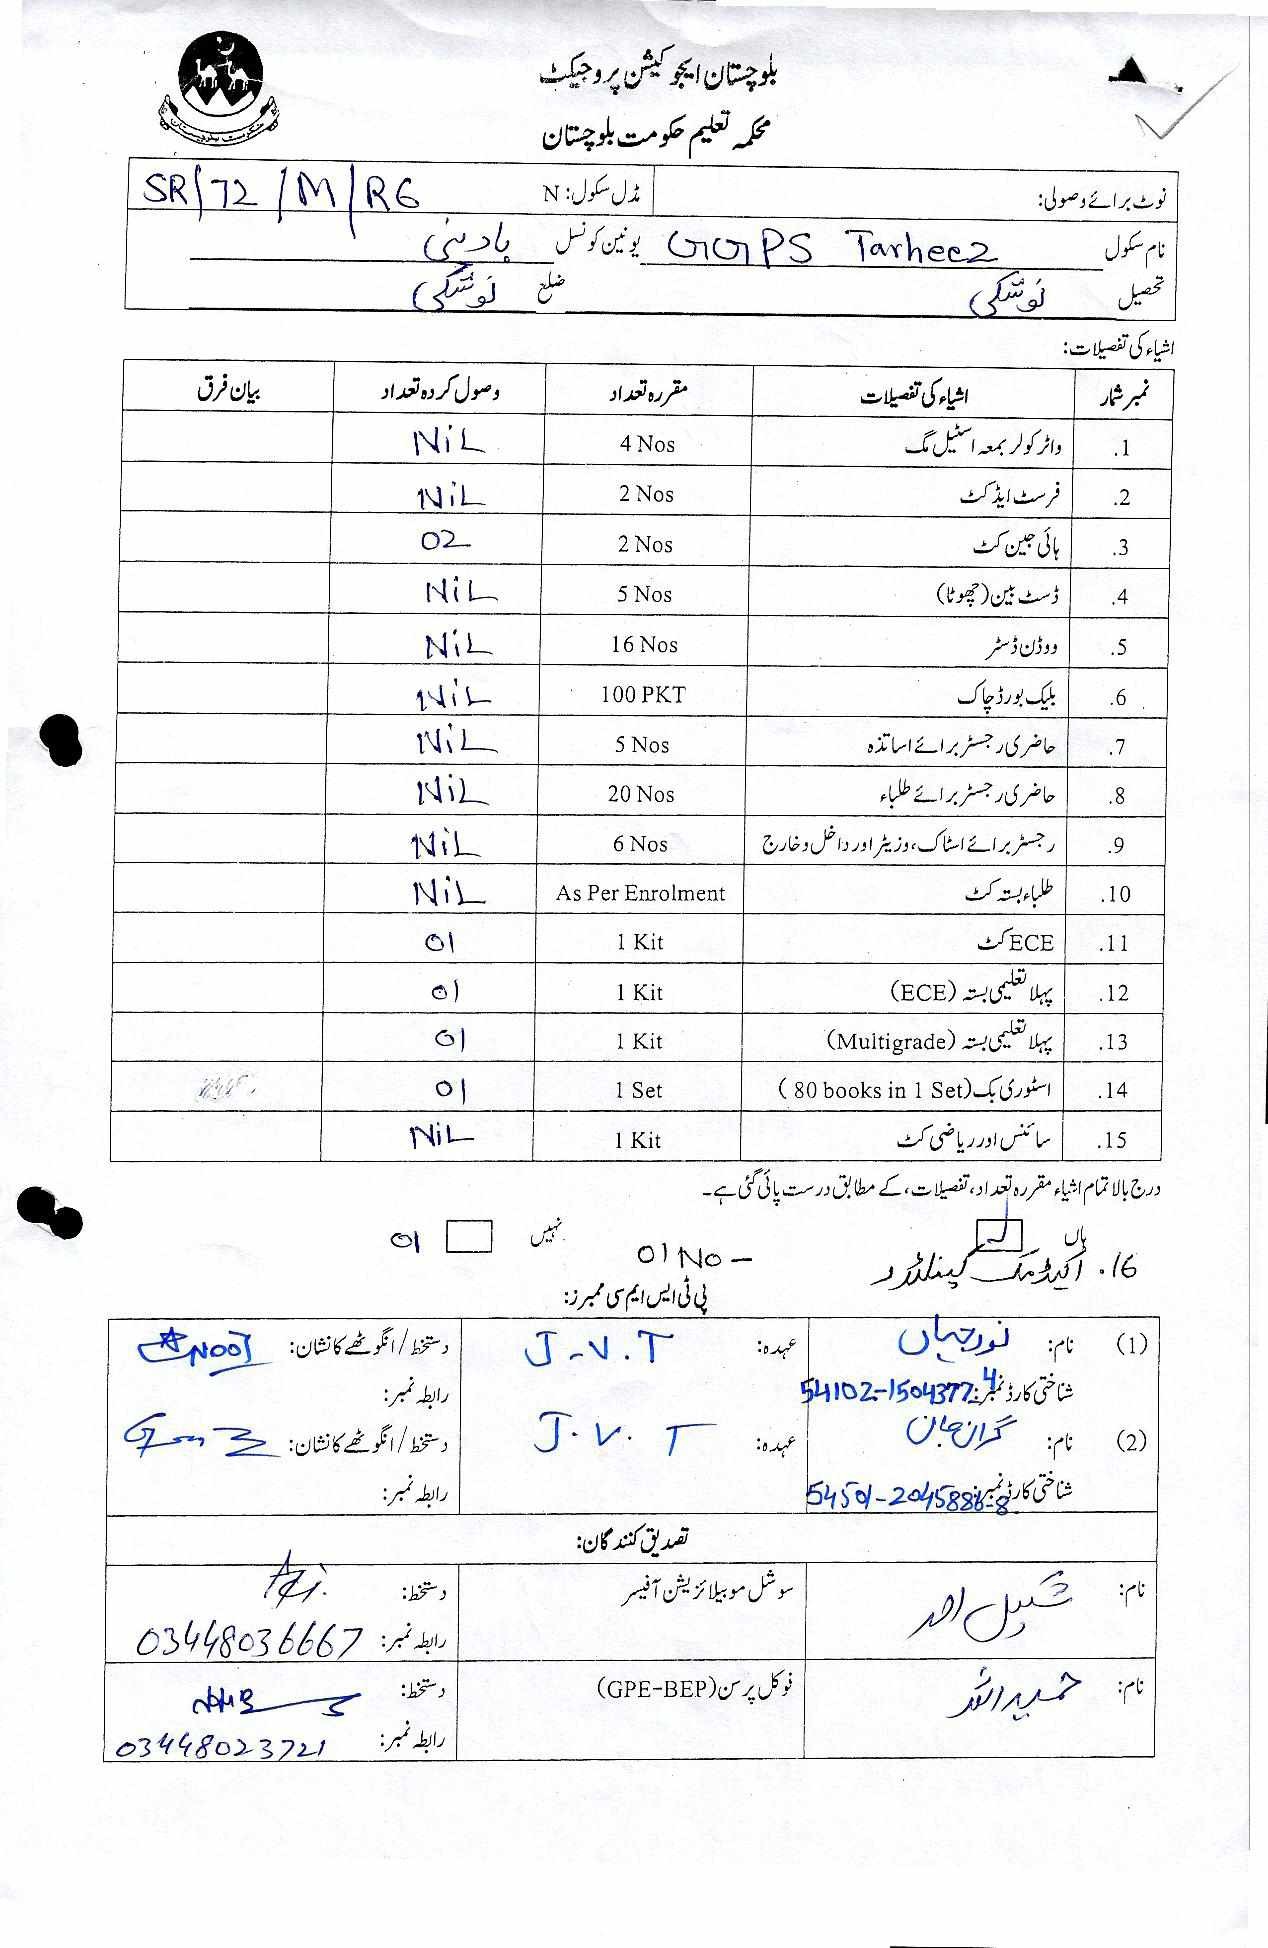 حکومت بلوچستان
بلوچستان ایجوکیشن پروجیکٹ
محکمہ تعلیم حکومت بلوچستان
نوٹ برائے وصولی: مڈل سکول: N SR/72/M/RG
نام سکول GGPS Tarheez یونین کونسل بادینی
تحصیل نوشکی ضلع نوشکی
اشیاء کی تفصیلات:
نمبر شمار اشیاء کی تفصیلات مقررہ تعداد وصول کردہ تعداد بیان فرق
1. واٹر کولر بمعہ اسٹیل مگ 4 Nos NiL
2. فرسٹ ایڈ کٹ 2 Nos NiL
3. ہائی جین کٹ 2 Nos 02
4. ڈسٹ بین (چھوٹا) 5 Nos NiL
5. ووڈن ڈسٹر 16 Nos NiL
6. بلیک بورڈ چاک 100 PKT NiL
7. حاضری رجسٹر برائے اساتذہ 5 Nos NiL
8. حاضری رجسٹر برائے طلباء 20 Nos NiL
9. رجسٹر برائے اسٹاک، وزیٹر اور داخل و خارج 6 Nos NiL
10. طلباء بستہ کٹ As Per Enrolment NiL
11. ECE کٹ 1 Kit 01
12. پہلا تعلیمی بستہ (ECE) 1 Kit 01
13. پہلا تعلیمی بستہ (Multigrade) 1 Kit 01
14. اسٹوری بک (80 books in 1 Set) 1 Set 01
15. سائنس اور ریاضی کٹ 1 Kit NiL
درج بالا تمام اشیاء مقررہ تعداد، تفصیلات، کے مطابق درست پائی گئی ہے۔
ہاں نہیں 01
16. اکیڈمک کیلنڈر 01 No –
پی ٹی ایس ایم سی ممبرز:
(1) نام: نور جہاں عہدہ: J.V.T دستخط/انگوٹھے کا نشان: Noor
شناختی کارڈ نمبر: 54102-1504377-4 رابطہ نمبر:
(2) نام: گران جان عہدہ: J.V.T دستخط/انگوٹھے کا نشان:
شناختی کارڈ نمبر: 54501-2045886-8 رابطہ نمبر:
تصدیق کنندگان:
نام: شکیل احمد سوشل موبیلائزیشن آفیسر دستخط:
رابطہ نمبر: 03448036667
نام: حمید اللہ فوکل پرسن (GPE-BEP) دستخط:
رابطہ نمبر: 03448023721